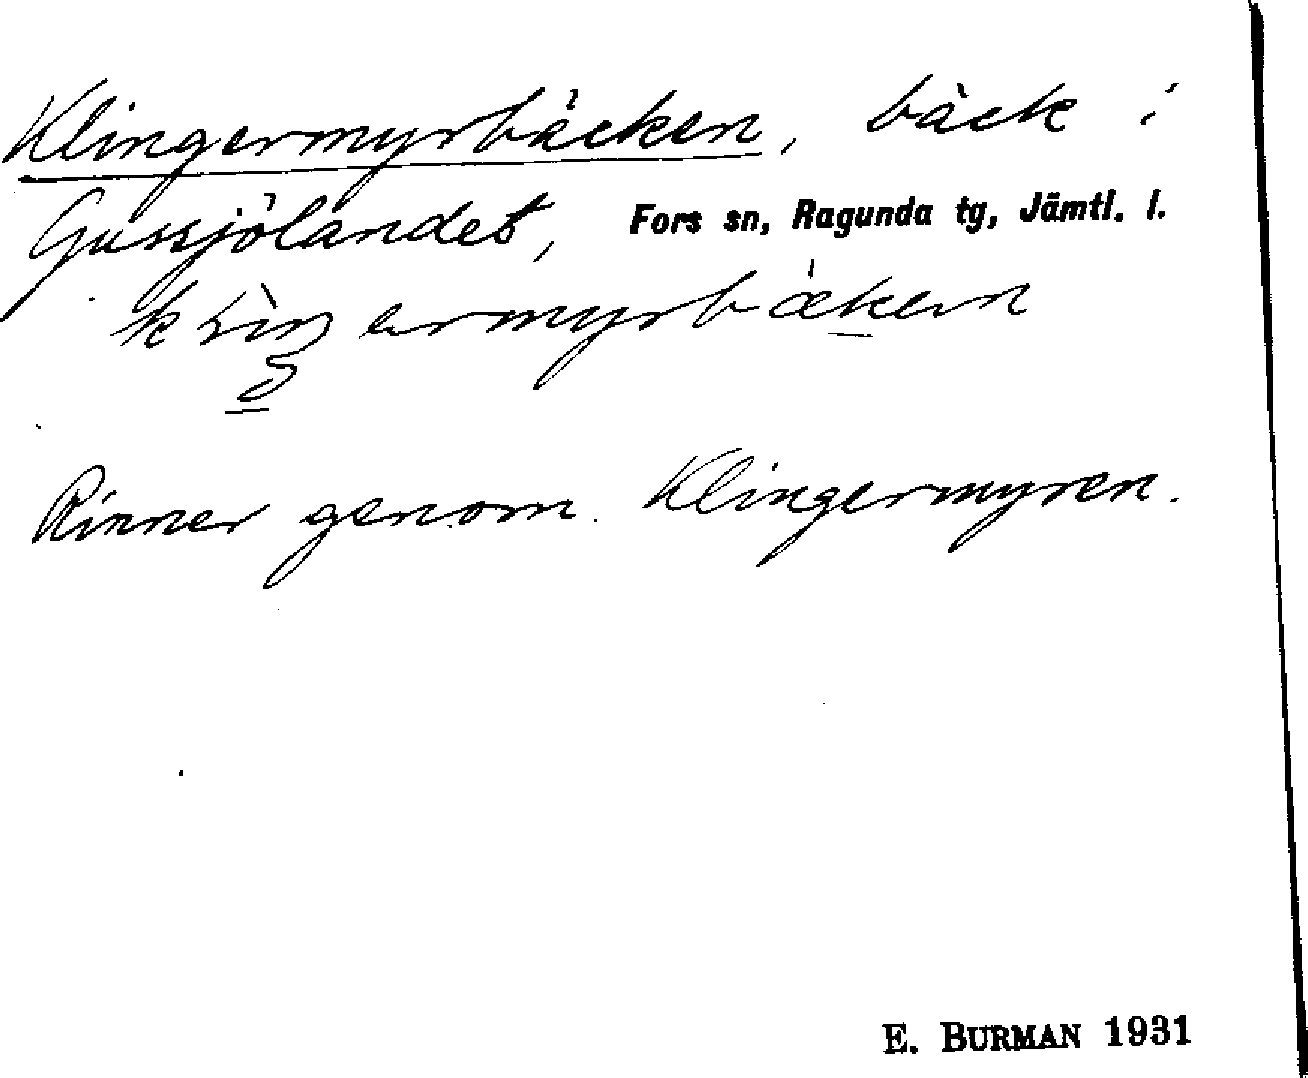 Klingermyrbäcken, bäck i
Gussjölandet, Fors sn, Ragunda tg, Jämtl. l.
Rinner genom Klingermyren.
E. BURMAN 1931